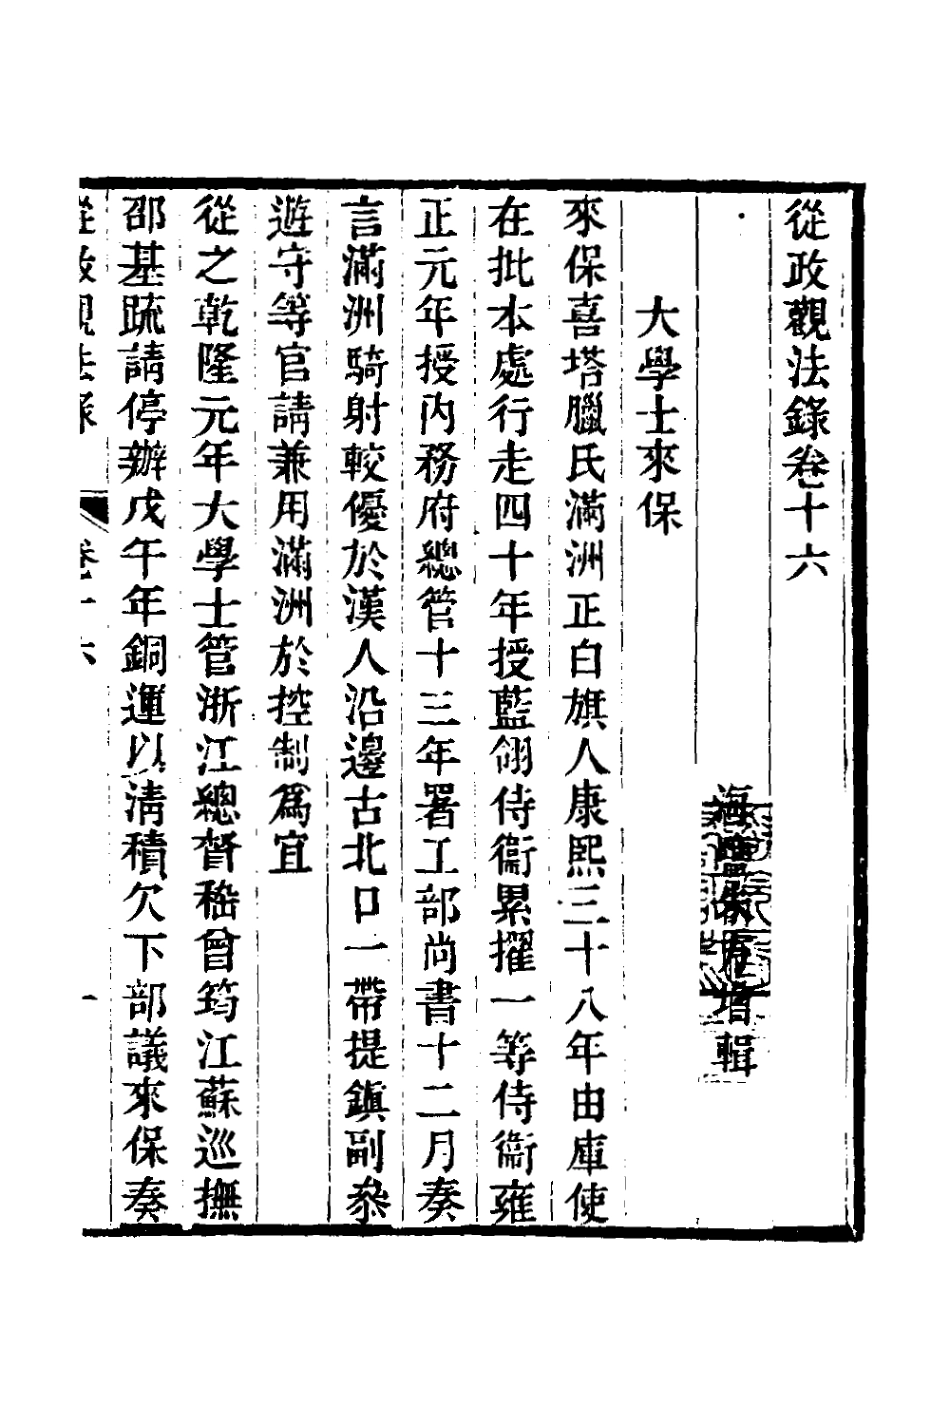 從政觀法錄卷十六
海鹽朱方增輯
大學士來保
來保喜塔臘氏滿洲正白旗人康熙三十八年由庫使
在批本處行走四十年授藍翎侍衞累擢一等侍衞雍
正元年授內務府總管十三年署工部尚書十二月奏
言滿洲騎射較優於漢人沿邊古北口一帶提鎮副叅
遊守等官請兼用滿洲於控制爲宜
從之乾隆元年大學士管浙江總督嵇曾筠江蘇巡撫
邵基疏請停辦戊午年銅運以淸積欠下部議來保奏
從政觀法錄 卷十六 一